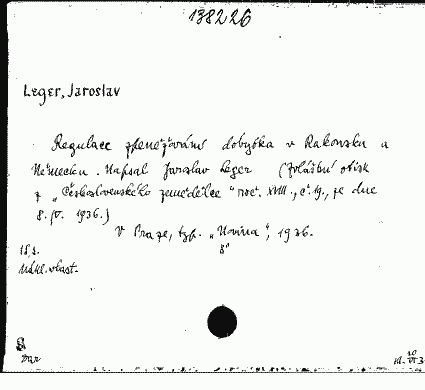 138226
Leger, Jaroslav
Regulace zpeněžování dobytka v Rakousku a
Německu. Napsal Jaroslav Leger (Zvláštní otisk
z „Československého zemědělce" roč. XVIII., č. 19., ze dne
8./V. 1936.)
V Praze, typ. „Novina", 1936.
8°
18 s.
Nákl. vlast.
Dar